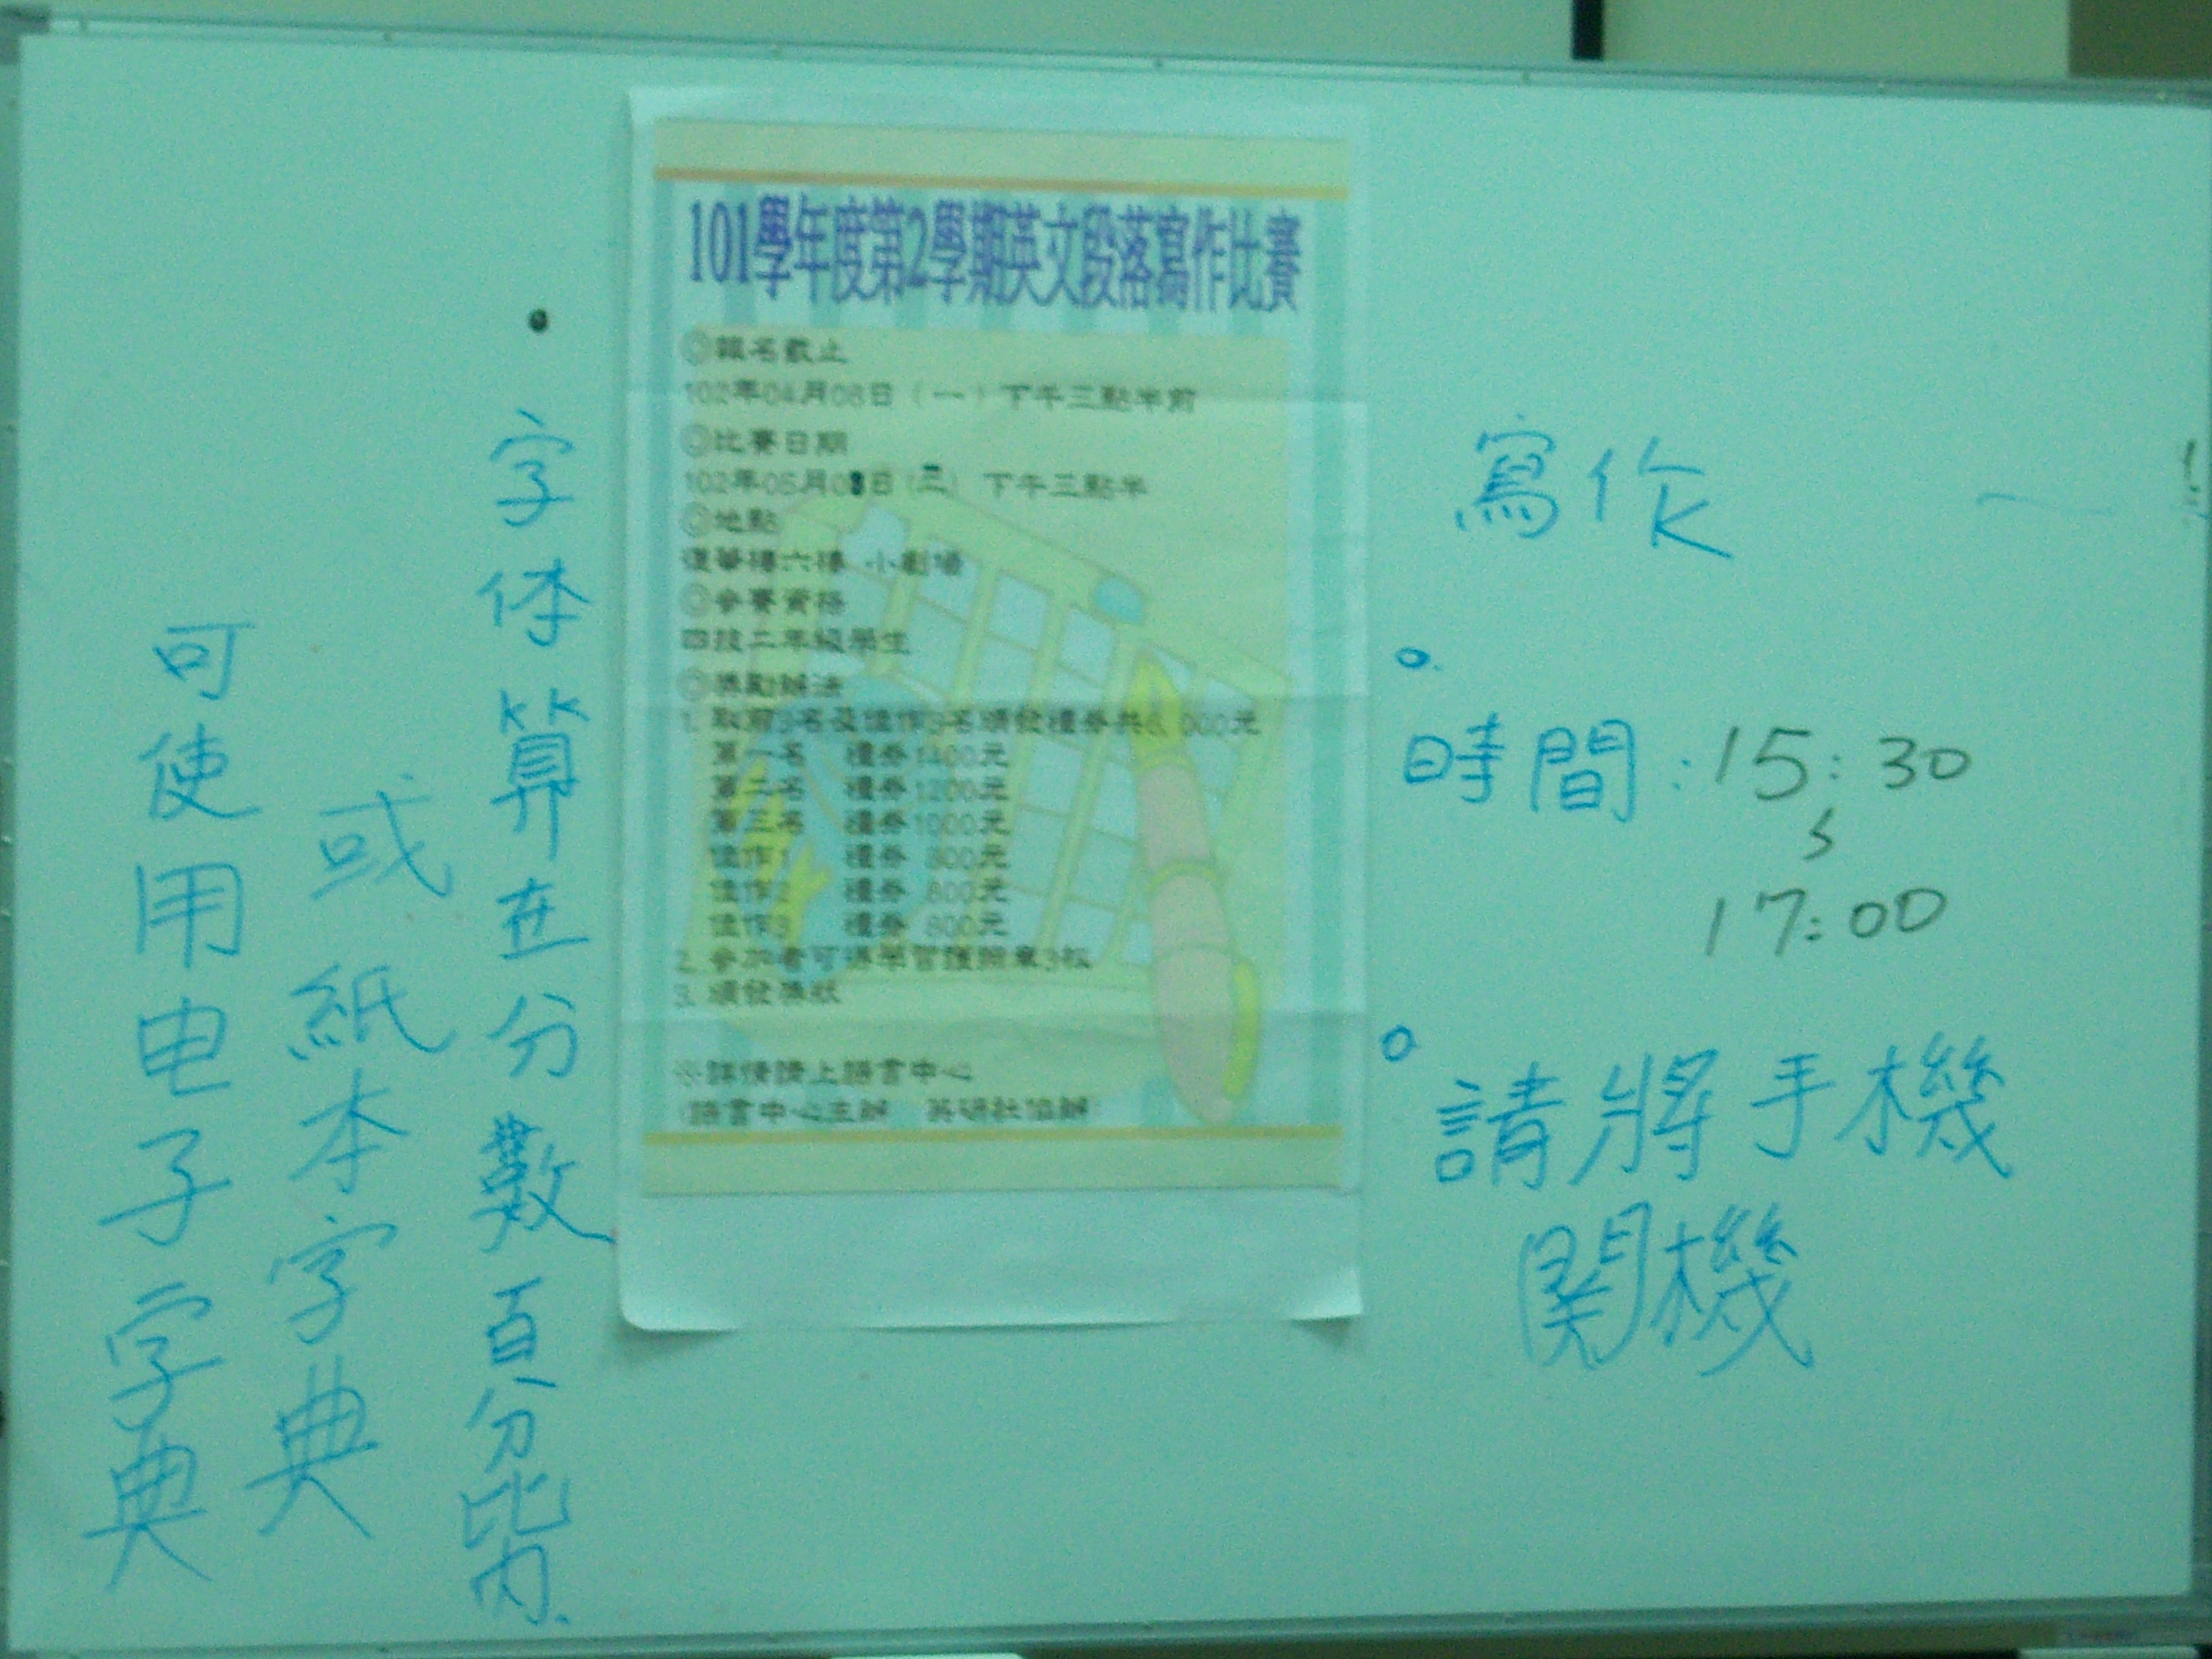 101學年度第2學期英文段落寫作比賽
◎報名截止
102年04月08日（一）下午三點半前
◎比賽日期
102年05月08日(三) 下午三點半
◎地點
復華樓六樓 小劇場
◎參賽資格
四技二年級學生
◎獎勵辦法
1. 取前3名及佳作3名頒發禮券共6,000元
第一名 禮券1400元
第二名 禮券1200元
第三名 禮券1000元
佳作1 禮券 800元
佳作2 禮券 800元
佳作3 禮券 800元
2. 參加者可得學習護照章3枚
3. 頒發獎狀
※詳情請上語言中心
(語言中心主辦 英研社協辦)
寫作
時間:15:30
17:00
請將手機
関機
字体算在分數百分比內.
可使用电子字典
或紙本字典